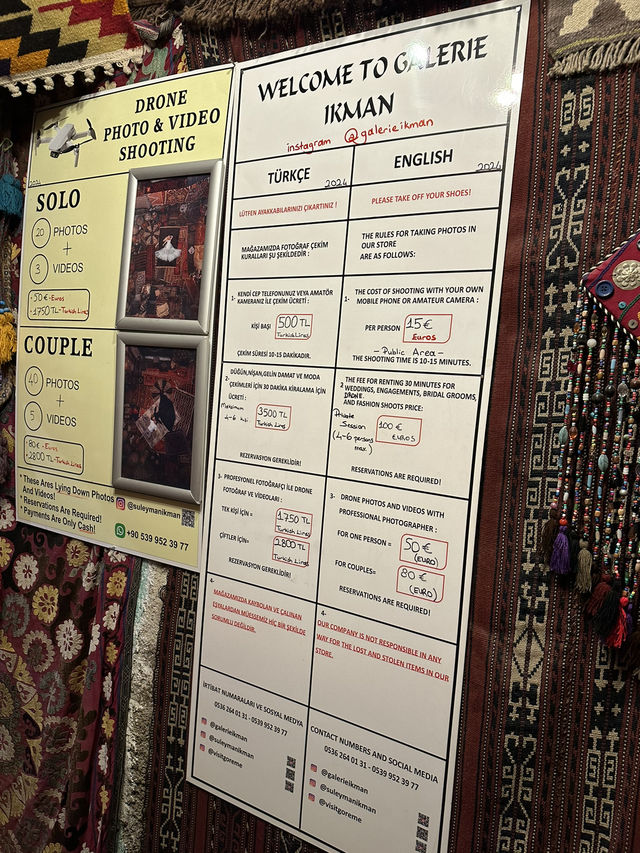 DRONE
PHOTO & VIDEO
SHOOTING
2024
SOLO
20 PHOTOS
+
3 VIDEOS
- 50 € - Euros
- 1750 TL - Turkish Liras
COUPLE
40 PHOTOS
+
5 VIDEOS
- 80 € - Euros
- 2800 TL - Turkish Liras
* These Ares Lying Down Photos
And Videos!
* Reservations Are Required!
* Payments Are Only Cash!
@suleymanikman
+90 539 952 39 77
WELCOME TO GALERIE
IKMAN
instagram @galerieikman
TÜRKÇE
2024
LÜTFEN AYAKKABILARINIZI ÇIKARTINIZ !
MAĞAZAMIZDA FOTOĞRAF ÇEKİM
KURALLARI ŞU ŞEKİLDEDİR :
1- KENDİ CEP TELEFONUNUZ VEYA AMATÖR
KAMERANIZ İLE ÇEKİM ÜCRETİ :
KİŞİ BAŞI 500 TL
Turkish Liras
ÇEKİM SÜRESİ 10-15 DAKİKADIR.
2- DÜĞÜN,NİŞAN,GELİN DAMAT VE MODA
ÇEKİMLERİ İÇİN 30 DAKİKA KİRALAMA İÇİN
ÜCRETİ :
Maksimum
4-6
3500 TL
Turkish Liras
REZERVASYON GEREKLİDİR!
3- PROFESYONEL FOTOĞRAFÇI İLE DRONE
FOTOĞRAF VE VİDEOLARI :
TEK KİŞİ İÇİN = 1750 TL
Turkish Liras
ÇİFTLER İÇİN= 2800 TL
Turkish Liras
REZERVASYON GEREKLİDİR!
4-
MAĞAZAMIZDA KAYBOLAN VE ÇALINAN
EŞYALARDAN MÜESSEMİZ HİÇ BİR ŞEKİLDE
SORUMLU DEĞİLDİR.
İRTİBAT NUMARALARI VE SOSYAL MEDYA
0536 264 01 31 - 0539 952 39 77
@galerieikman
@suleymanikman
@visitgoreme
ENGLISH
2024
PLEASE TAKE OFF YOUR SHOES!
THE RULES FOR TAKING PHOTOS IN
OUR STORE
ARE AS FOLLOWS:
1- THE COST OF SHOOTING WITH YOUR OWN
MOBILE PHONE OR AMATEUR CAMERA :
PER PERSON 15 €
Euros
- Public Area -
THE SHOOTING TIME IS 10-15 MINUTES.
2 THE FEE FOR RENTING 30 MINUTES FOR
WEDDINGS, ENGAGEMENTS, BRIDAL GROOMS,
DRONE
AND FASHION SHOOTS PRICE:
Private
Session
(4-6 persons
max.)
100 €
EUROS
RESERVATIONS ARE REQUIRED!
3- DRONE PHOTOS AND VIDEOS WITH
PROFESSIONAL PHOTOGRAPHER :
FOR ONE PERSON = 50 €
(EURO)
FOR COUPLES= 80 €
(EURO)
RESERVATIONS ARE REQUIRED!
4-
OUR COMPANY IS NOT RESPONSIBLE IN ANY
WAY FOR THE LOST AND STOLEN ITEMS IN OUR
STORE.
CONTACT NUMBERS AND SOCIAL MEDIA
0536 264 01 31 - 0539 952 39 77
@galerieikman
@suleymanikman
@visitgoreme